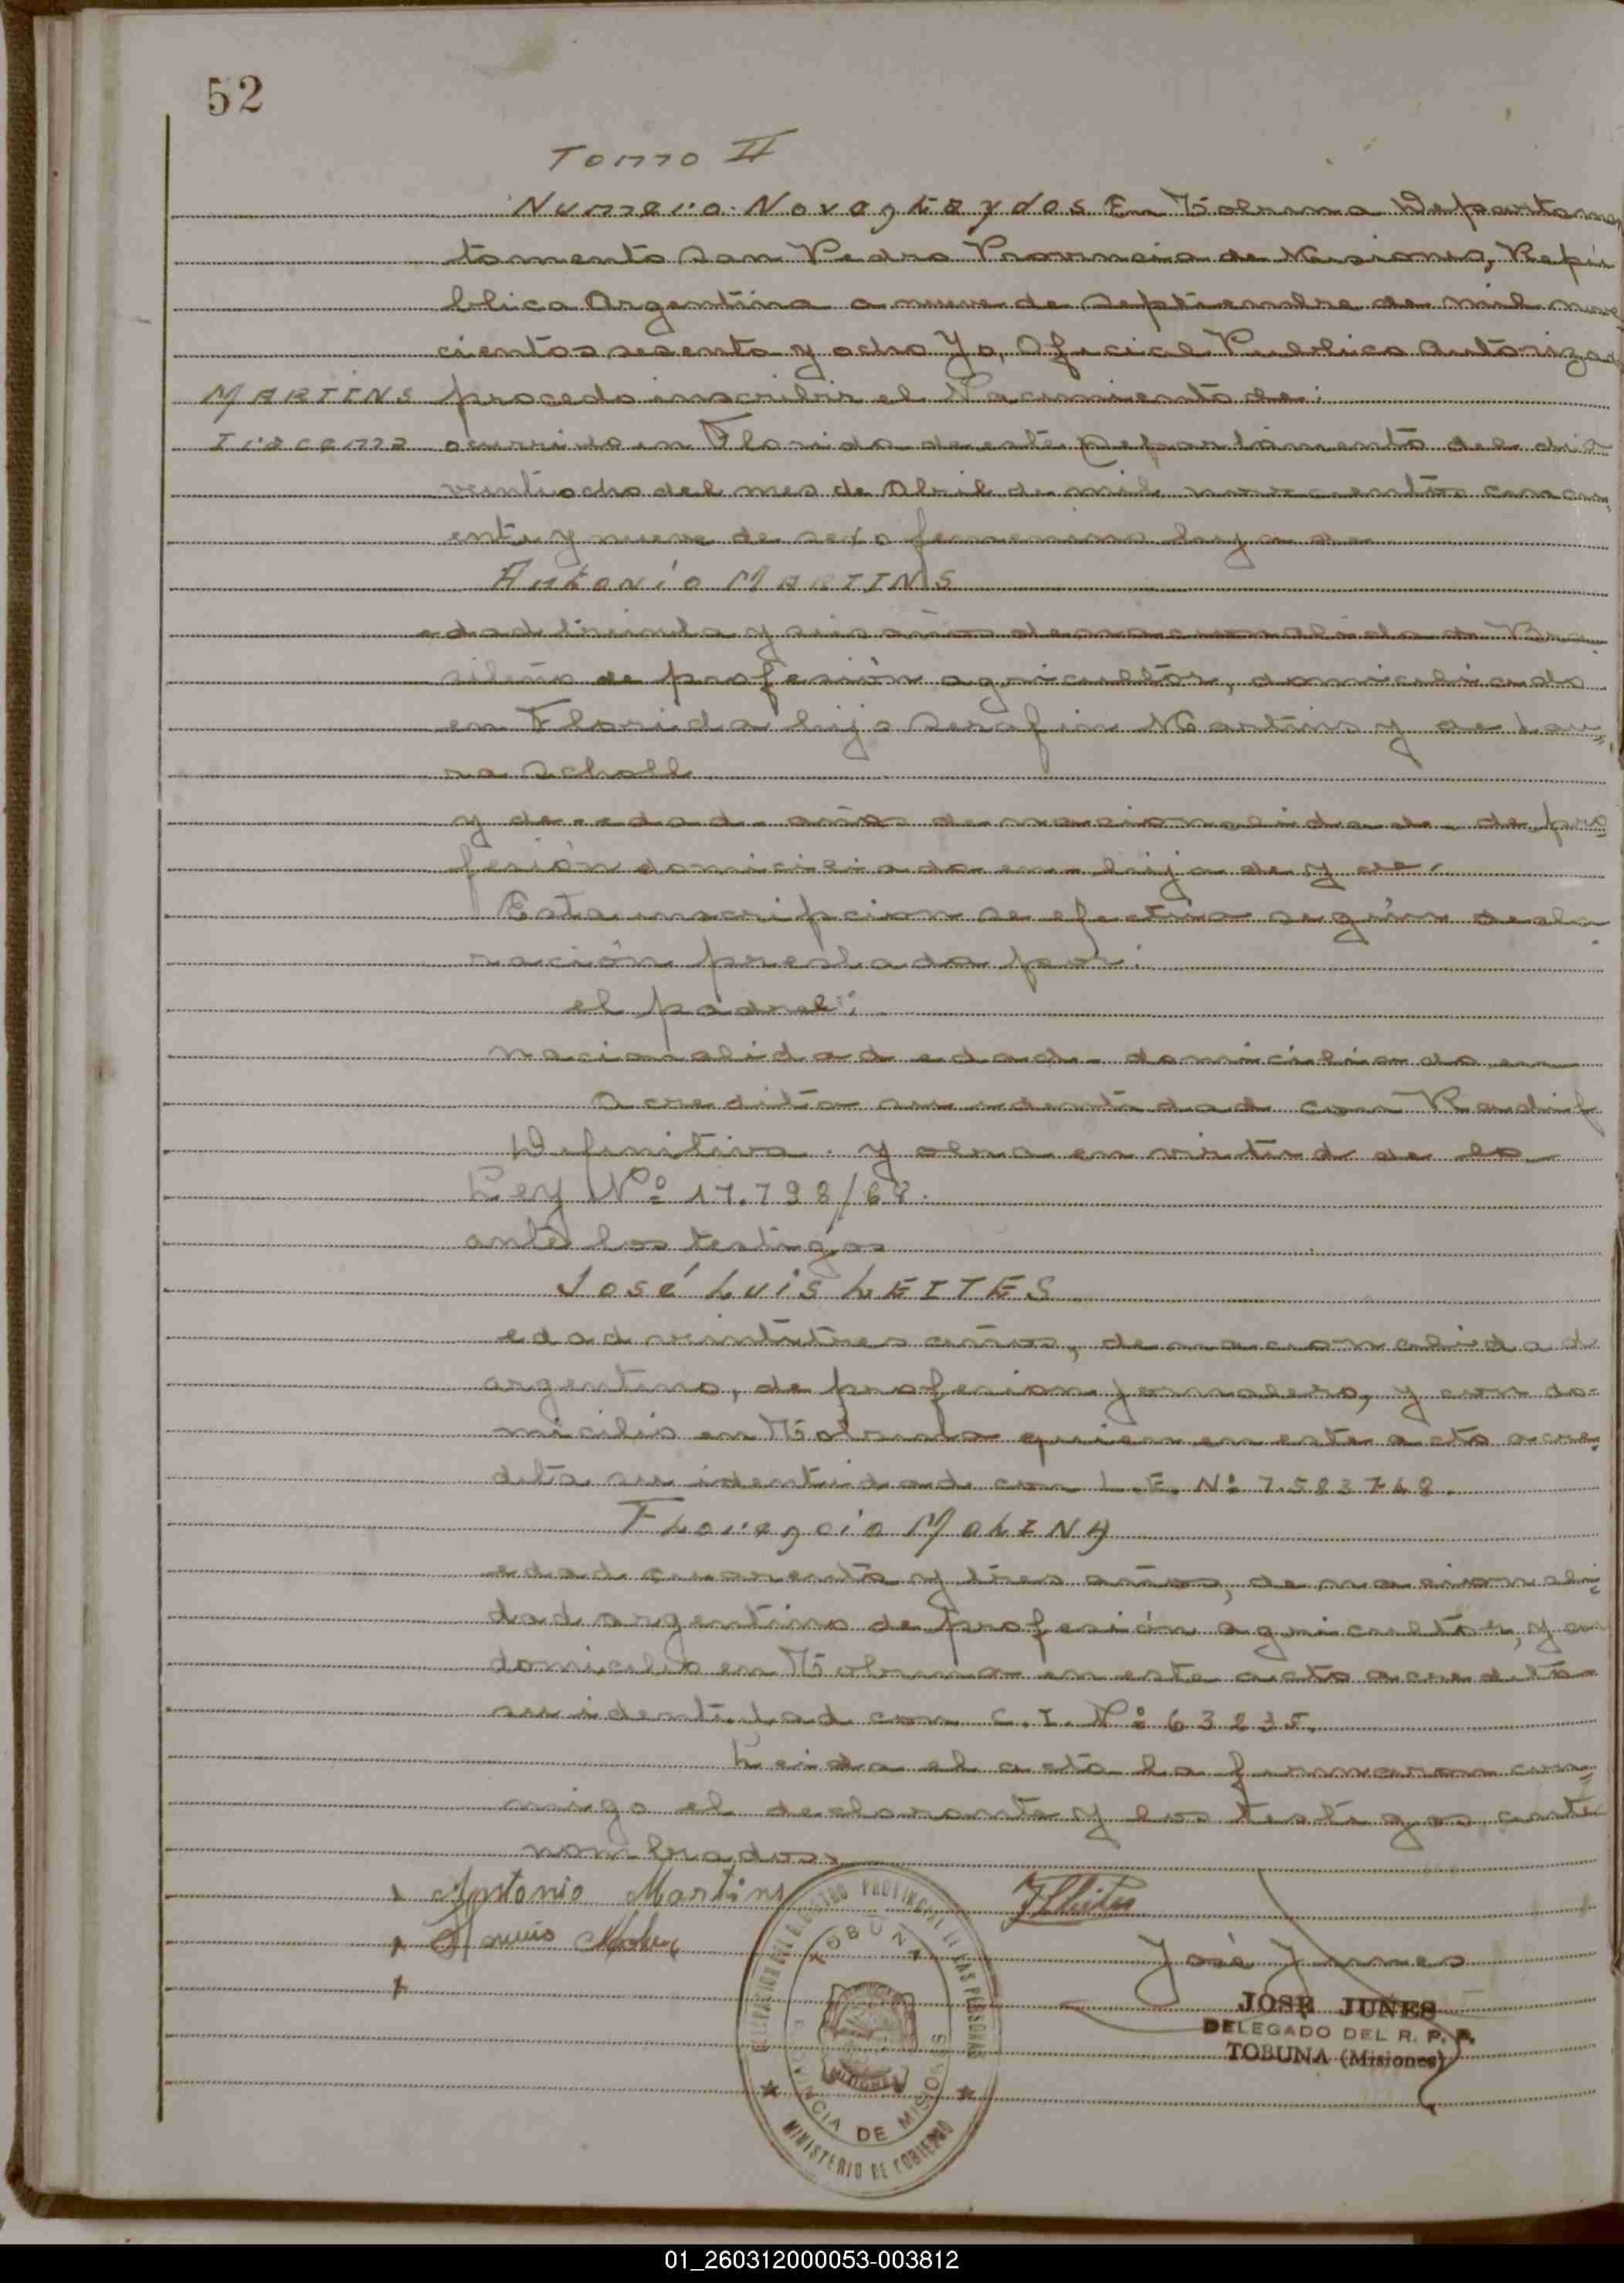 52
Tomo II
Numero Noventa y dos En Tobuna Departame
tamento San Pedro Provincia de Misiones, Repú
blica Argentina a nueve de Septiembre de mil nove
cientos sesenta y ocho Yo, Oficial Publico Autoriza
MARTINS procedo inscribir el Nacimiento de:
Iracema ocurrido en Florida de este Departamento del dia
veintiocho del mes de Abril de mil novecientos cincu
enta y nueve de sexo femenino hija de
Antonio MARTINS
edad treinta y seis años de nacionalidad Bra
sileño de profesión agricultor, domiciliado
en Florida hijo Serafin Martins y de Lau=
ra Scholl
y de - edad - años de nacionalidad - de pro
fesión domiciliada en - hija de y de.
Esta inscripcion se efectúa según decla
ración prestada por:
el padre:
nacionalidad edad - domiciliado en
Acredita su identidad con Radif
Definitiva. y obra en virtud de la
Ley Nº 17.798/68.
ante los testigos
José Luis LEITES
edad veintitres años, de nacionalidad
argentino, de profesion jornalero, y con do=
micilio en Tobuna quien en este acto acre=
dita su identidad con L.E. Nº 7.583748.
Florencio MOLINA
edad cuarenta y tres años, de nacionali=
dad argentino de profesión agricultor, y con
domicilio en Tobuna en este acto acredita
su identidad con C.I. Nº 63235.
Leida el acta la firmaron con=
migo el declarante y los testigos ante
nombrados.
Antonio Martins
José Junes
JOSE JUNES
DELEGADO DEL R. P. P.
TOBUNA (Misiones)
REGISTRO PROVINCIAL DE LAS PERSONAS
TOBUNA
PROVINCIA DE MISIONES
MINISTERIO DE GOBIERNO
01_260312000053-003812